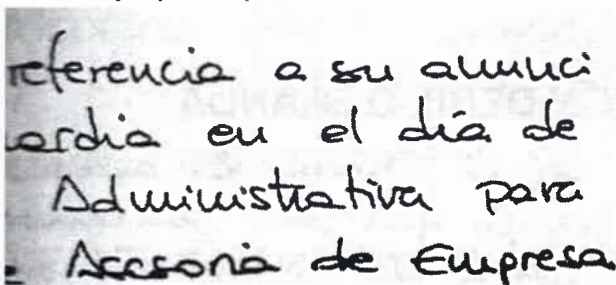 referencia a su anunci
ardia en el día de
Administrativa para
Asesoria de Empresa